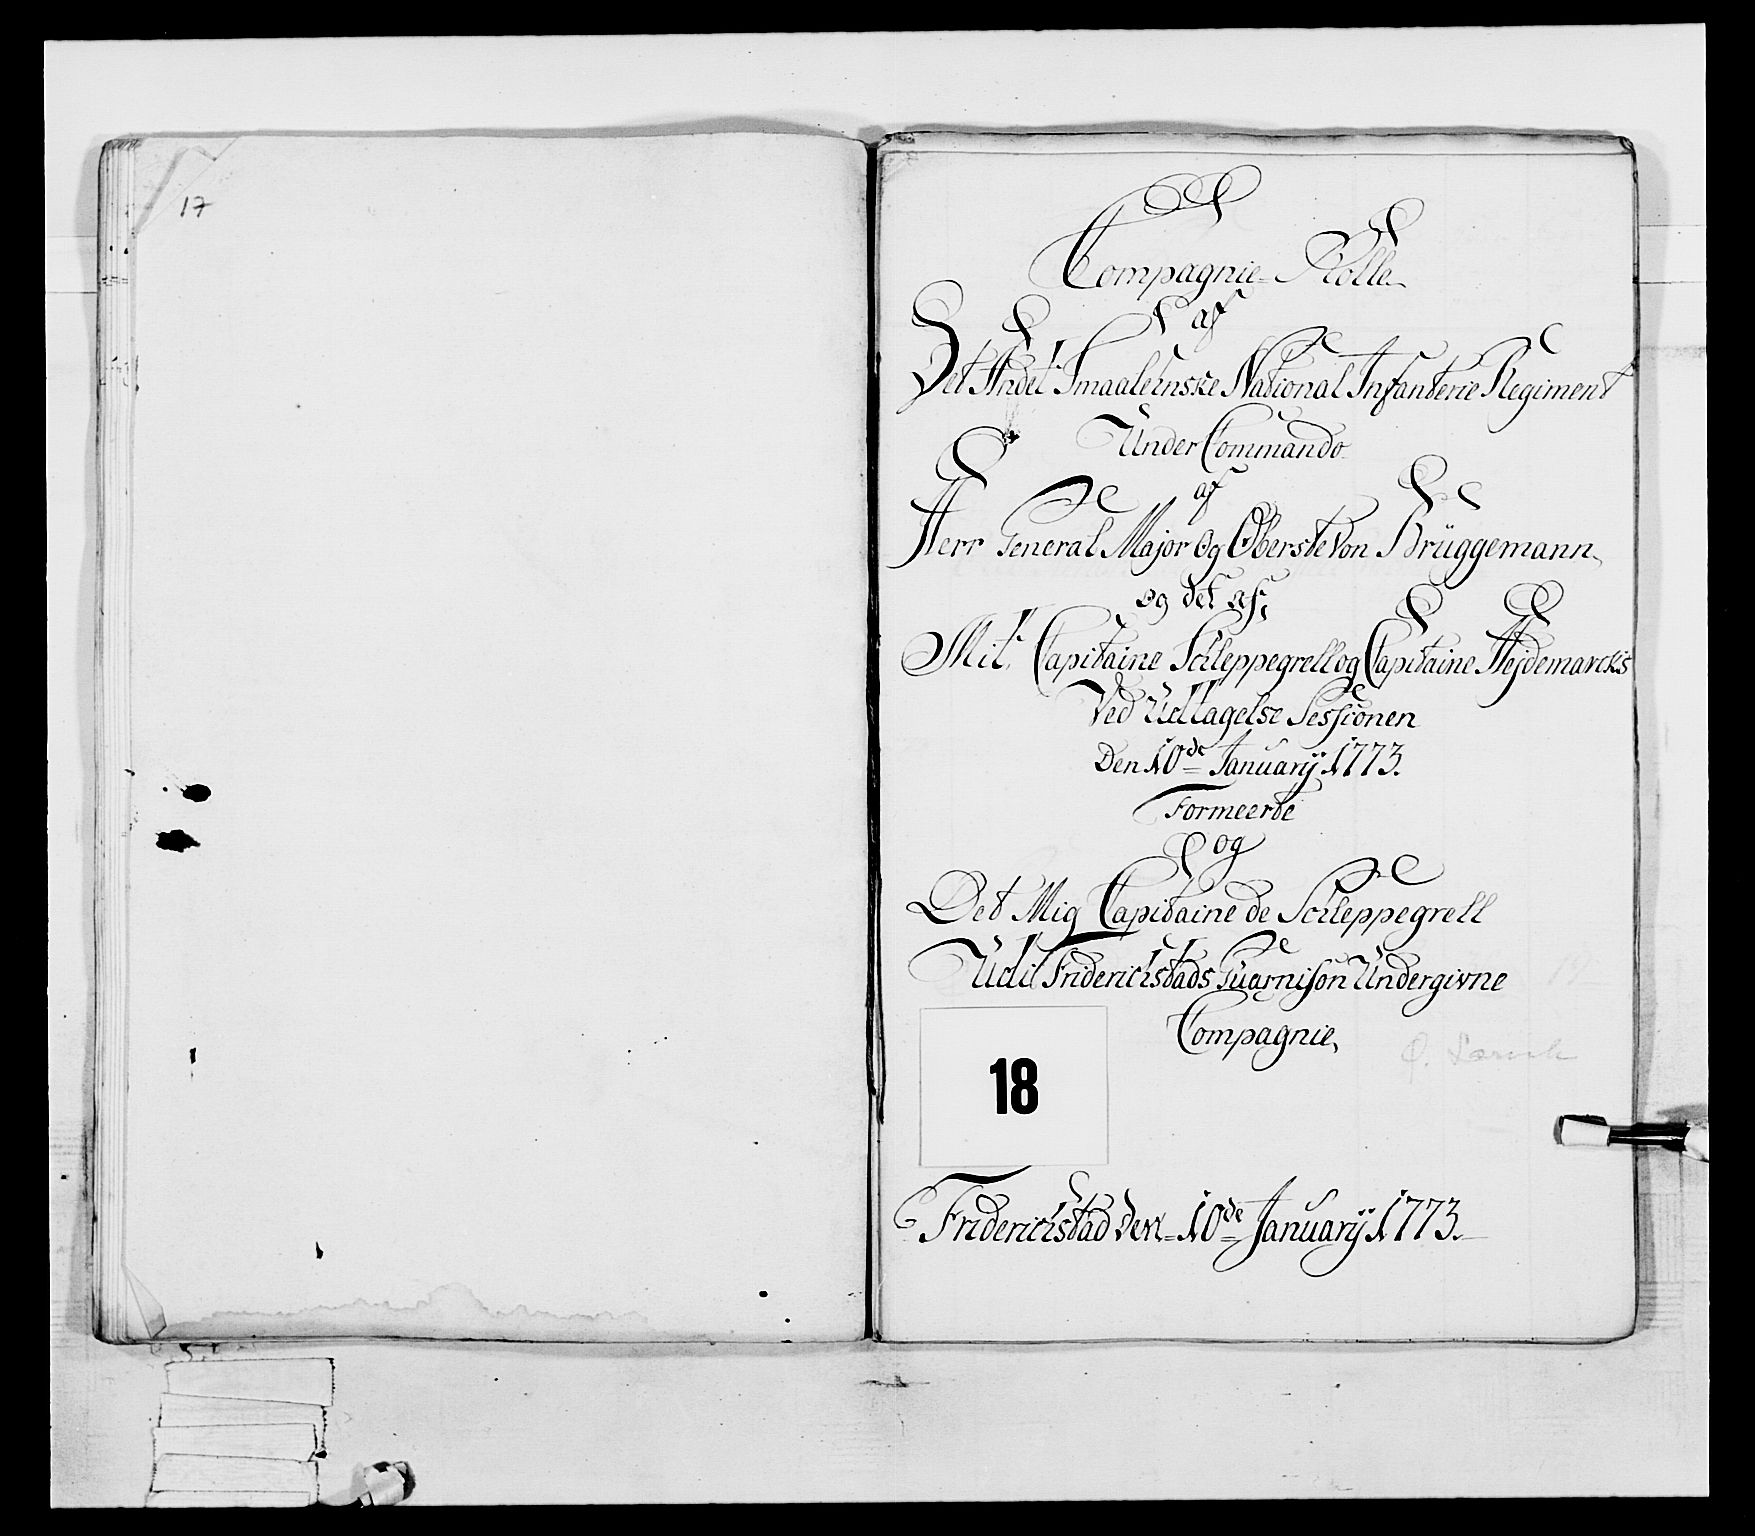 17
Compagnie-Rolle
af
Det Andet Smaalehnske National Infanterie Regiment
Under Commando
af
Herr General Major Og Oberste Von Brüggemann
og det af
Mit, Capitaine Schleppegrell og Capitaine Hejdemarck's
Ved Udtagelse Sessionen
Den 10de January 1773.
Formeerte
og
Det Mig Capitaine de Schleppegrell
Udi Friderichstads Guarnison Undergivne
Compagnie,
18
Friderichstad Den 10de January 1773.